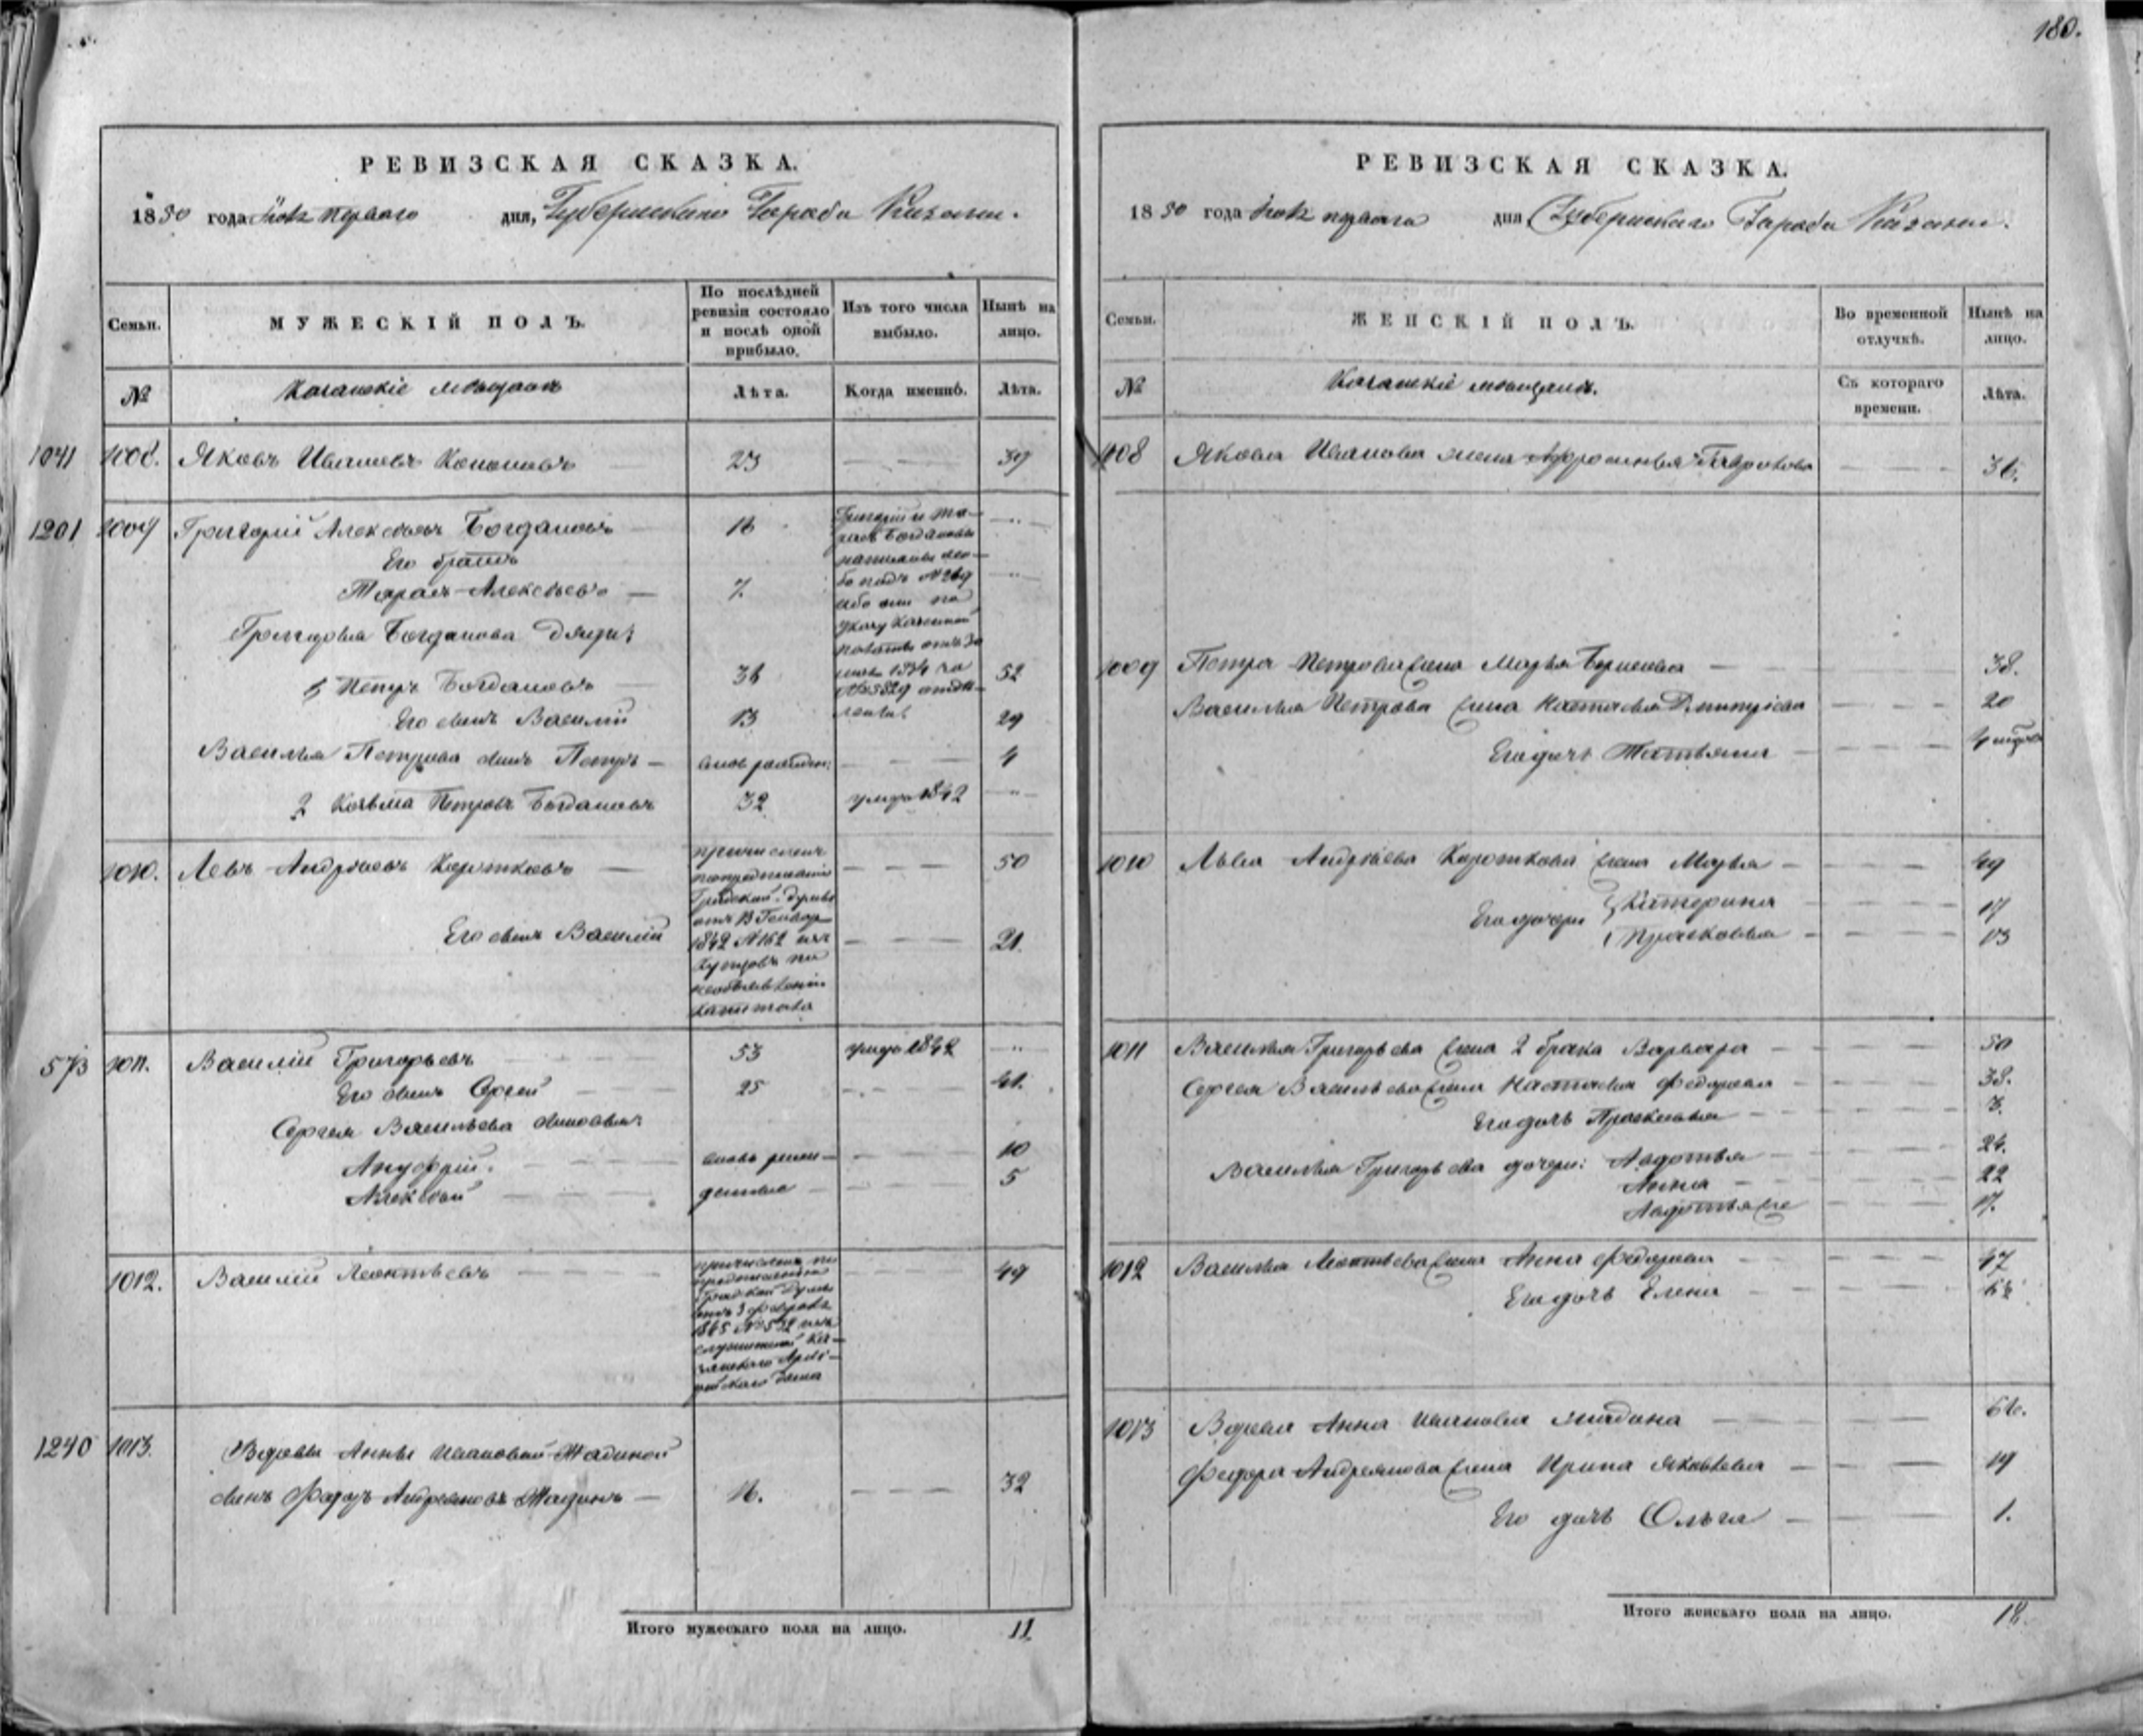 180.
РЕВИЗСКАЯ СКАЗКА.
1850 года перваго дня, Губернскаго Города Казани.
Семьи.
МУЖЕСКІЙ ПОЛЪ.
По послѣдней ревизіи состояло и послѣ оной прибыло.
Изъ того числа выбыло.
Нынѣ на лицо.
№
Казанскіе мѣщане
Лѣта.
Когда именно.
Лѣта.
1041 1008. Яковъ Ивановъ Кононовъ 23 39
1201 1009 Григорій Алексѣевъ Богдановъ 16
Григорій и Та-
расъ Богдановы
Его братъ
Тарасъ Алексѣевъ 7.
Григорья Богданова дяди:
1 Петръ Богдановъ 36 52
Его сынъ Василій 13 29
Василья Петрова сынъ Петръ вновь рожден: 4
2 Козьма Петровъ Богдановъ 32 умеръ 1842
1010. Левъ Андреевъ Коротковъ 50
причисленъ
по предписанію
Градской Думы
отъ 13 Генвар
1842 № 162 изъ
купцовъ по
необъявленію
капитала
Его сынъ Василій 21.
573 1011. Василій Григорьевъ 53 умеръ 1842
Его сынъ Сергей 25 41.
Сергея Васильева сыновья:
Ануфрій. вновь рож- 10
Алексѣй денные 5
1012. Василій Леонтьевъ 49
причисленъ по
предписанію
Градской Думы
отъ 3 Февраля
1845 № 532 изъ
служителей Ка-
занскаго Архі-
рейскаго дома
1240 1013. Вдовы Анны Ивановой Жадиной
сынъ Федоръ Андреяновъ Жадинъ 16. 32
Итого мужескаго пола на лицо. 11
РЕВИЗСКАЯ СКАЗКА.
1850 года перваго дня, Губернскаго Города Казани.
Семьи.
ЖЕНСКІЙ ПОЛЪ.
Во временной отлучкѣ.
Нынѣ на лицо.
№
Казанскіе мѣщане.
Съ котораго времени.
Лѣта.
1008 Якова Иванова жена Афросинья 36.
1009 Петра Петрова жена Марья 38.
Василья Петрова жена Настасья Дмитріева 20
Его дочь Татьяна
1010 Льва Андреева Короткова жена Марья 49
Его дочери Катерина 17
Прасковья 13
1011 Василья Григорьева жена 2 брака Варвара 50
Сергея Васильева жена Настасья Федорова 38.
Его дочь Прасковья 3.
Василья Григорьева дочери: Авдотья 24.
Анна 22
Авдотья же 17.
1012 Василья Леонтьева жена Анна Федорова 47
Его дочь Елена
1013 Вдова Анна Иванова Жадина 66.
Федора Андреянова жена Ирина Яковлева 19
Его дочь Ольга 1.
Итого женскаго пола на лицо.